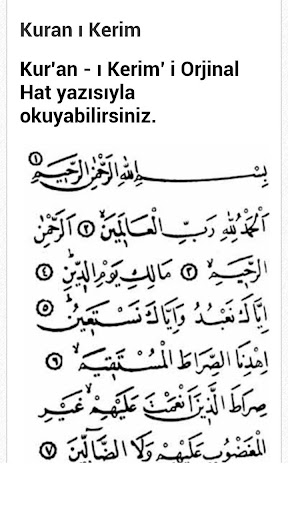 Kuran ı Kerim
Kur'an - ı Kerim' i Orjinal
Hat yazısıyla
okuyabilirsiniz.
بِسْمِ اللّٰهِ الرَّحْمٰنِ الرَّحِيمِ ١
اَلْحَمْدُ لِلّٰهِ رَبِّ الْعَالَمِينَ ٢ اَلرَّحْمٰنِ
الرَّحِيمِ ٣ مَالِكِ يَوْمِ الدِّينِ ٤
اِيَّاكَ نَعْبُدُ وَاِيَّاكَ نَسْتَعِينُ ٥
اِهْدِنَا الصِّرَاطَ الْمُسْتَقِيمَ ٦
صِرَاطَ الَّذِينَ اَنْعَمْتَ عَلَيْهِمْ غَيْرِ
الْمَغْضُوبِ عَلَيْهِمْ وَلَا الضَّالِّينَ ٧